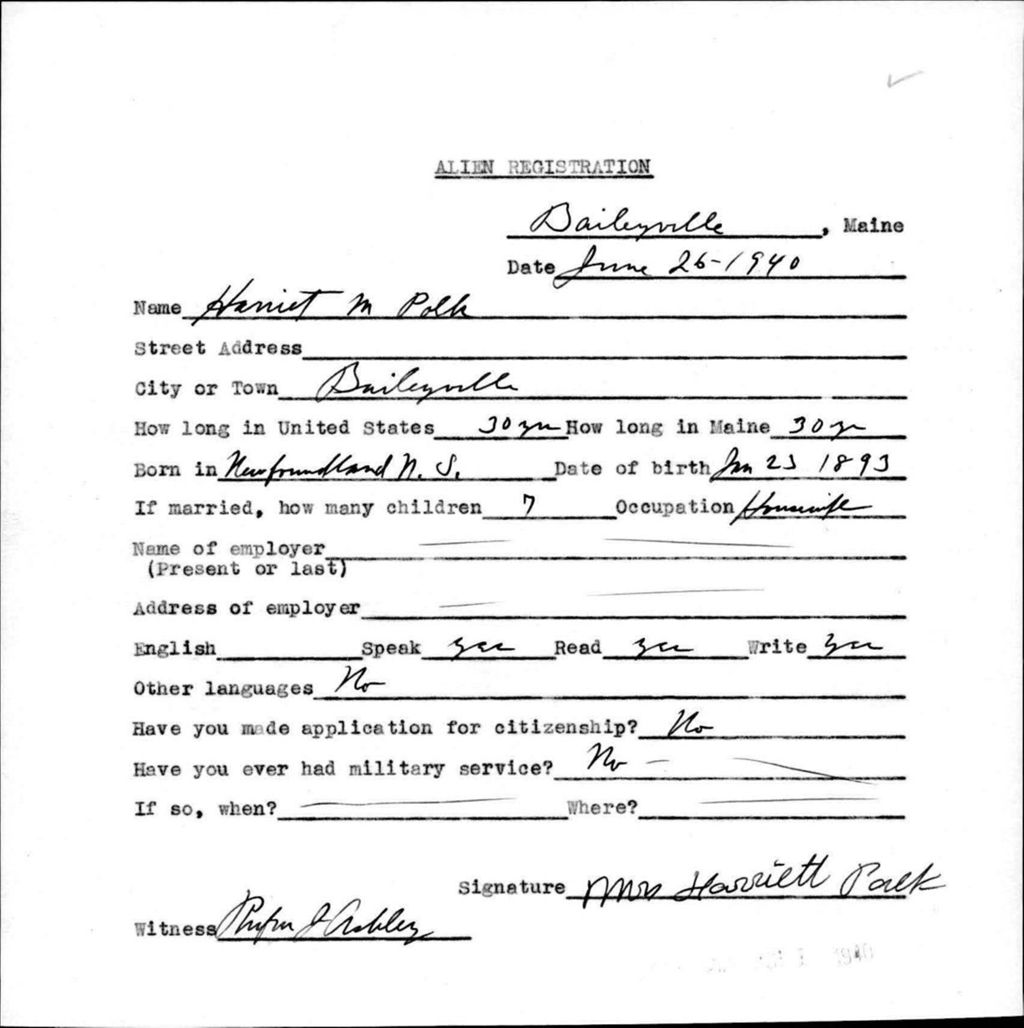 ALIEN REGISTRATION
Baileyville, Maine
Date June 26-1940
Name Harriet M Polk
Street Address
City or Town Baileyville
How long in United States 30 yrs How long in Maine 30 yr
Born in Newfoundland N. S. Date of birth Jan 23 1893
If married, how many children 7 Occupation Housewife
Name of employer
(Present or last)
Address of employer
English Speak yes Read yes Write yes
Other languages No
Have you made application for citizenship? No
Have you ever had military service? No -
If so, when? Where?
Signature Mrs Harriett Polk
Witness J Ashley
1940